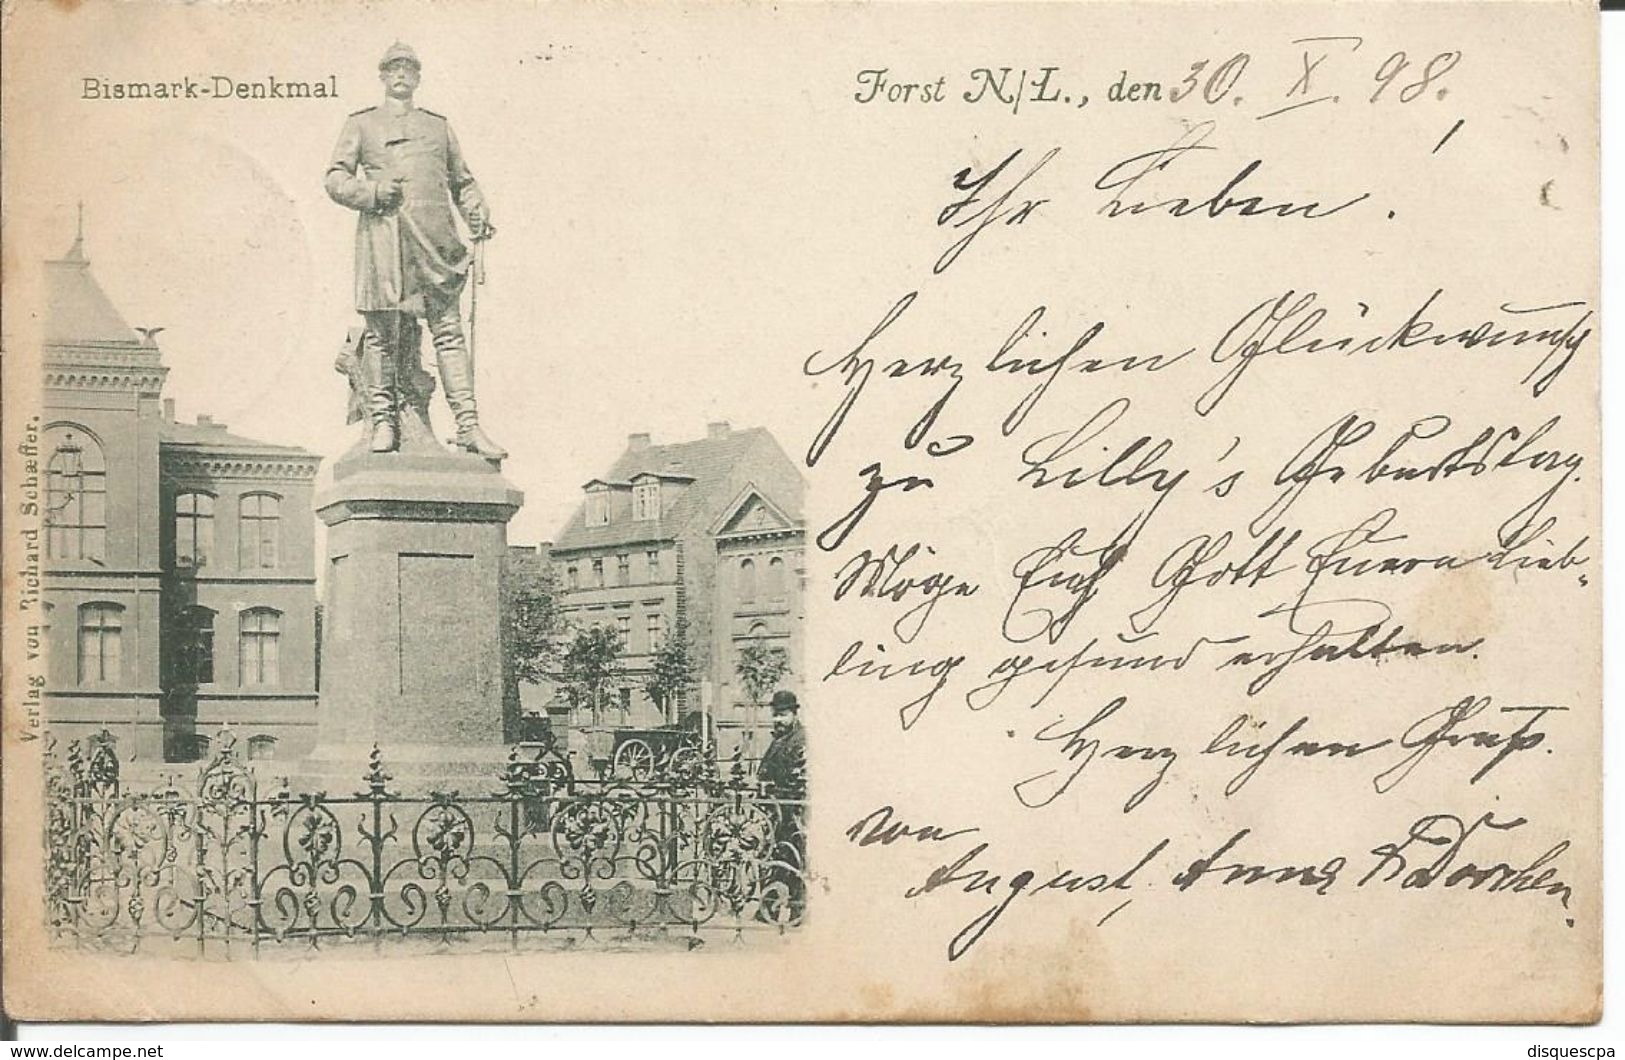 Bismark-Denkmal
Forst N/L., den 30. X. 98.
Ihr Lieben!
Herzlichen Glückwunsch
zu Lilly's Geburtstag.
Möge Euch Gott Euern Lieb-
ling gesund erhalten.
Herzlichen Gruß.
von
August, Anna & Dorchen.
Verlag von Richard Schæffer.
delcampe.net
disquescpa